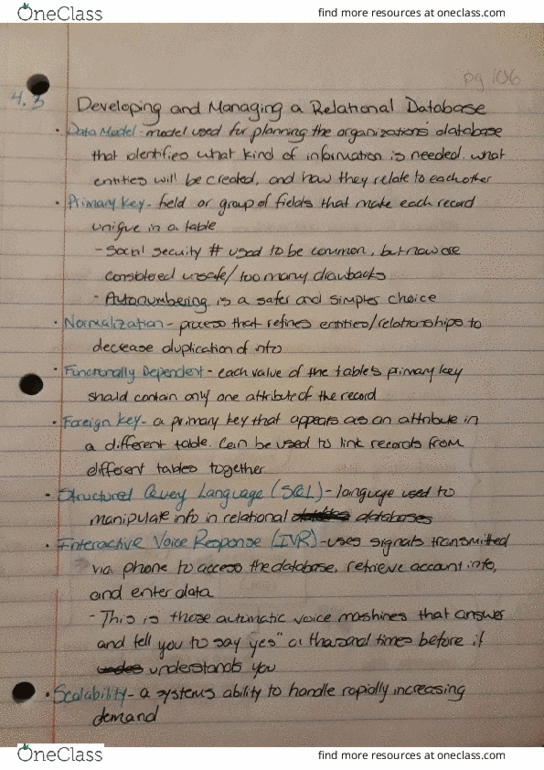 OneClass find more resources at oneclass.com
pg 106
4.3 Developing and Managing a Relational Database
· Data Model - model used for planning the organizations' database
that identifies what kind of information is needed, what
entities will be created, and how they relate to eachother
· Primary Key - field or group of fields that make each record
unique in a table
- Social security # used to be common, but now are
considered unsafe/too many drawbacks
- Autonumbering is a safer and simpler choice
· Normalization - process that refines entities/relationships to
decrease duplication of info
· Functionally Dependent - each value of the table's primary key
should contain only one attribute of the record
· Foreign Key - a primary key that appears as an attribute in
a different table. Can be used to link records from
different tables together
· Structured Query Language (SQL) - language used to
manipulate info in relational databases
· Interactive Voice Response (IVR) - uses signals transmitted
via phone to access the database, retrieve account info,
and enter data
- This is those automatic voice mashines that answer
and tell you to say "yes" a thousand times before it
understands you
· Scalability - a systems ability to handle rapidly increasing
demand
OneClass find more resources at oneclass.com